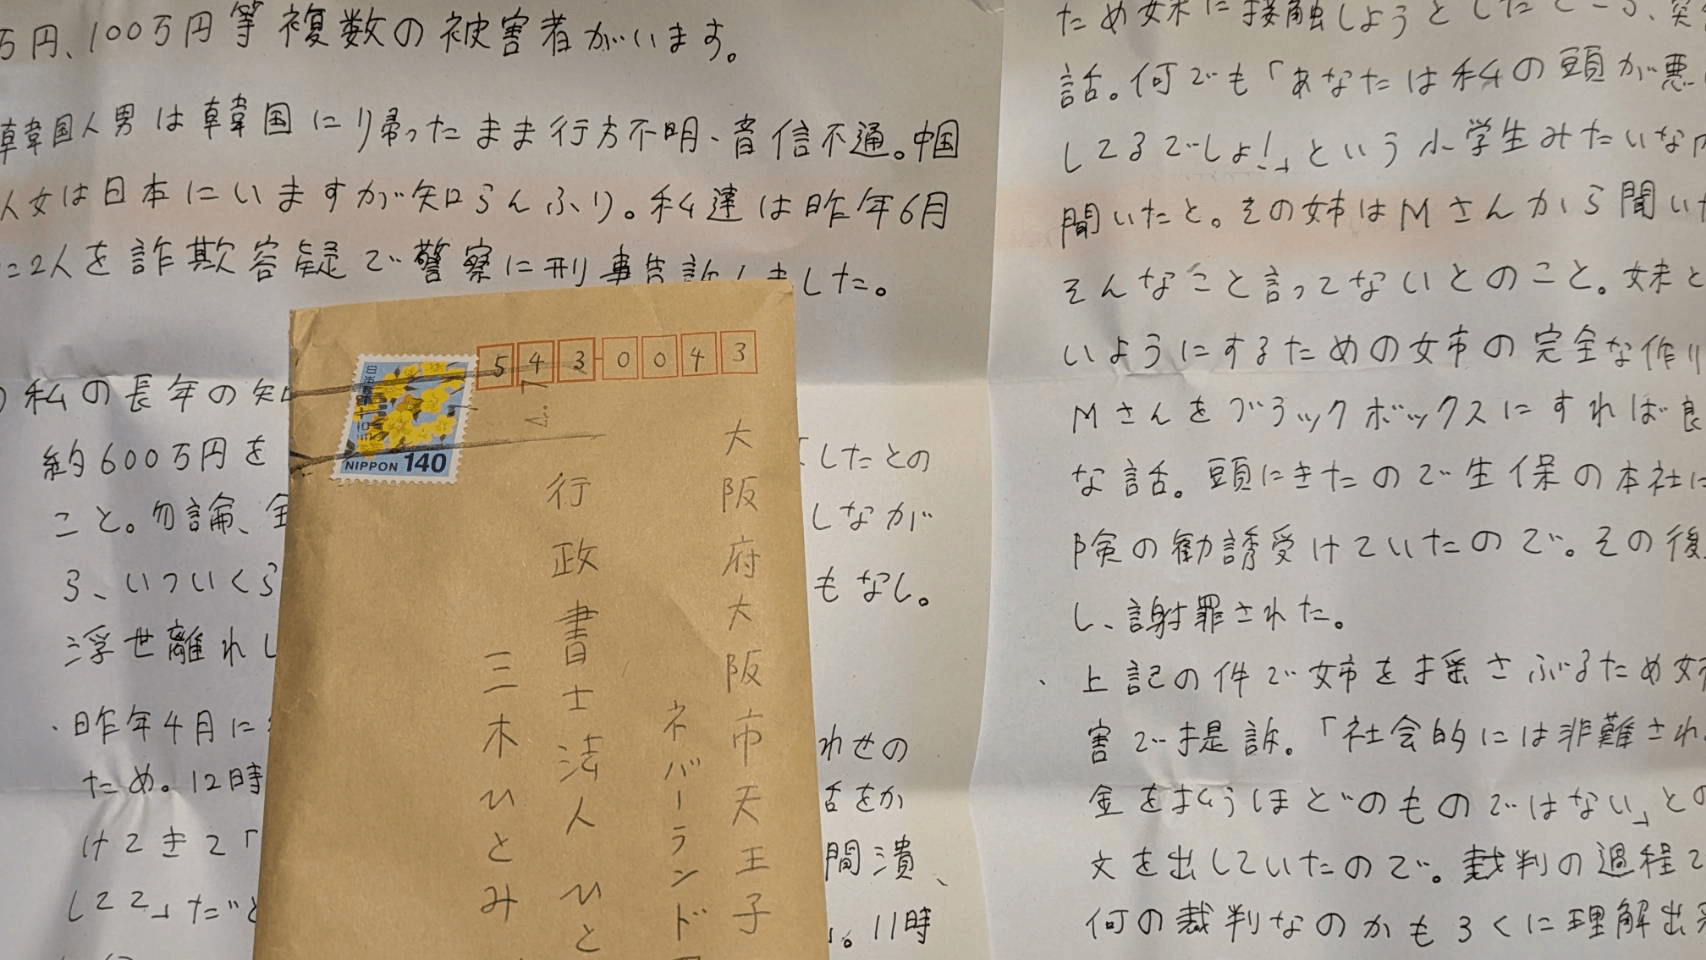 万円、100万円等複数の被害者がいます。
韓国人男は韓国に帰ったまま行方不明、音信不通。中国
人女は日本にいますが知らんふり。私達は昨年6月
に2人を詐欺容疑で警察に刑事告訴しました。
私の長年の知
約600万円を
したとの
こと。勿論、
しなが
ら、いついくら
もなし。
浮世離れし
・昨年4月に
わせの
ため。12時
をか
けてきて「
間潰、
してて」だと
。11時
ため妹に接触しようとしたところ、
話。何でも「あなたは私の頭が悪
してるでしょ!」という小学生みたいな
聞いたと。その姉はMさんから聞いた
そんなこと言ってないとのこと。妹と
いようにするための姉の完全な作り
Mさんをブラックボックスにすれば良
な話。頭にきたので生保の本社に
険の勧誘受けていたので。その後
し、謝罪された。
・上記の件で姉を揺さぶるため
害で提訴。「社会的には非難され
金を払うほどのものではない」との
文を出していたので。裁判の過程で
何の裁判なのかもろくに理解出来
543-0043
大阪府大阪市天王子
ネバーランド
行政書士法人ひと
三木ひとみ
日本郵便
NIPPON 140